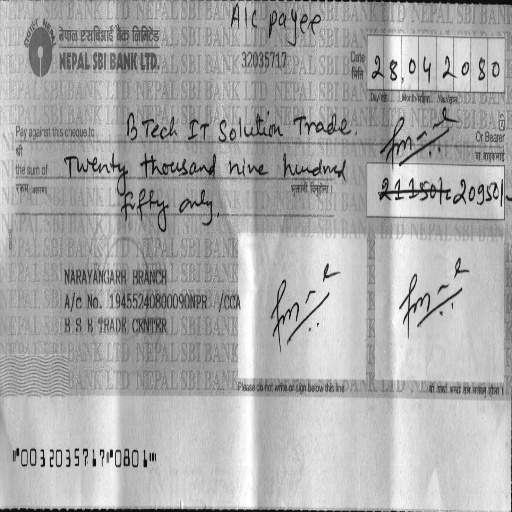 A/C payee
नेपाल एसबिआई बैंक लिमिटेड
NEPAL SBI BANK LTD.
32035717
Date
मिति
28,042080
Pay against this cheque to
B Tech IT Solution Trade.
Or Bearer
श्री
वा वाहकलाई
the sum of
Twenty thousand nine hundred
रकम अक्षरमा
भुक्तानी दिनुहोस् ।
21150/- 20950/-
fifty only.
NARAYANGARH BRANCH
A/c No. 19455240800090NPR /CCA
B S B TRADE CENTER
Please do not write or sign below this line
"003203571?"0801"